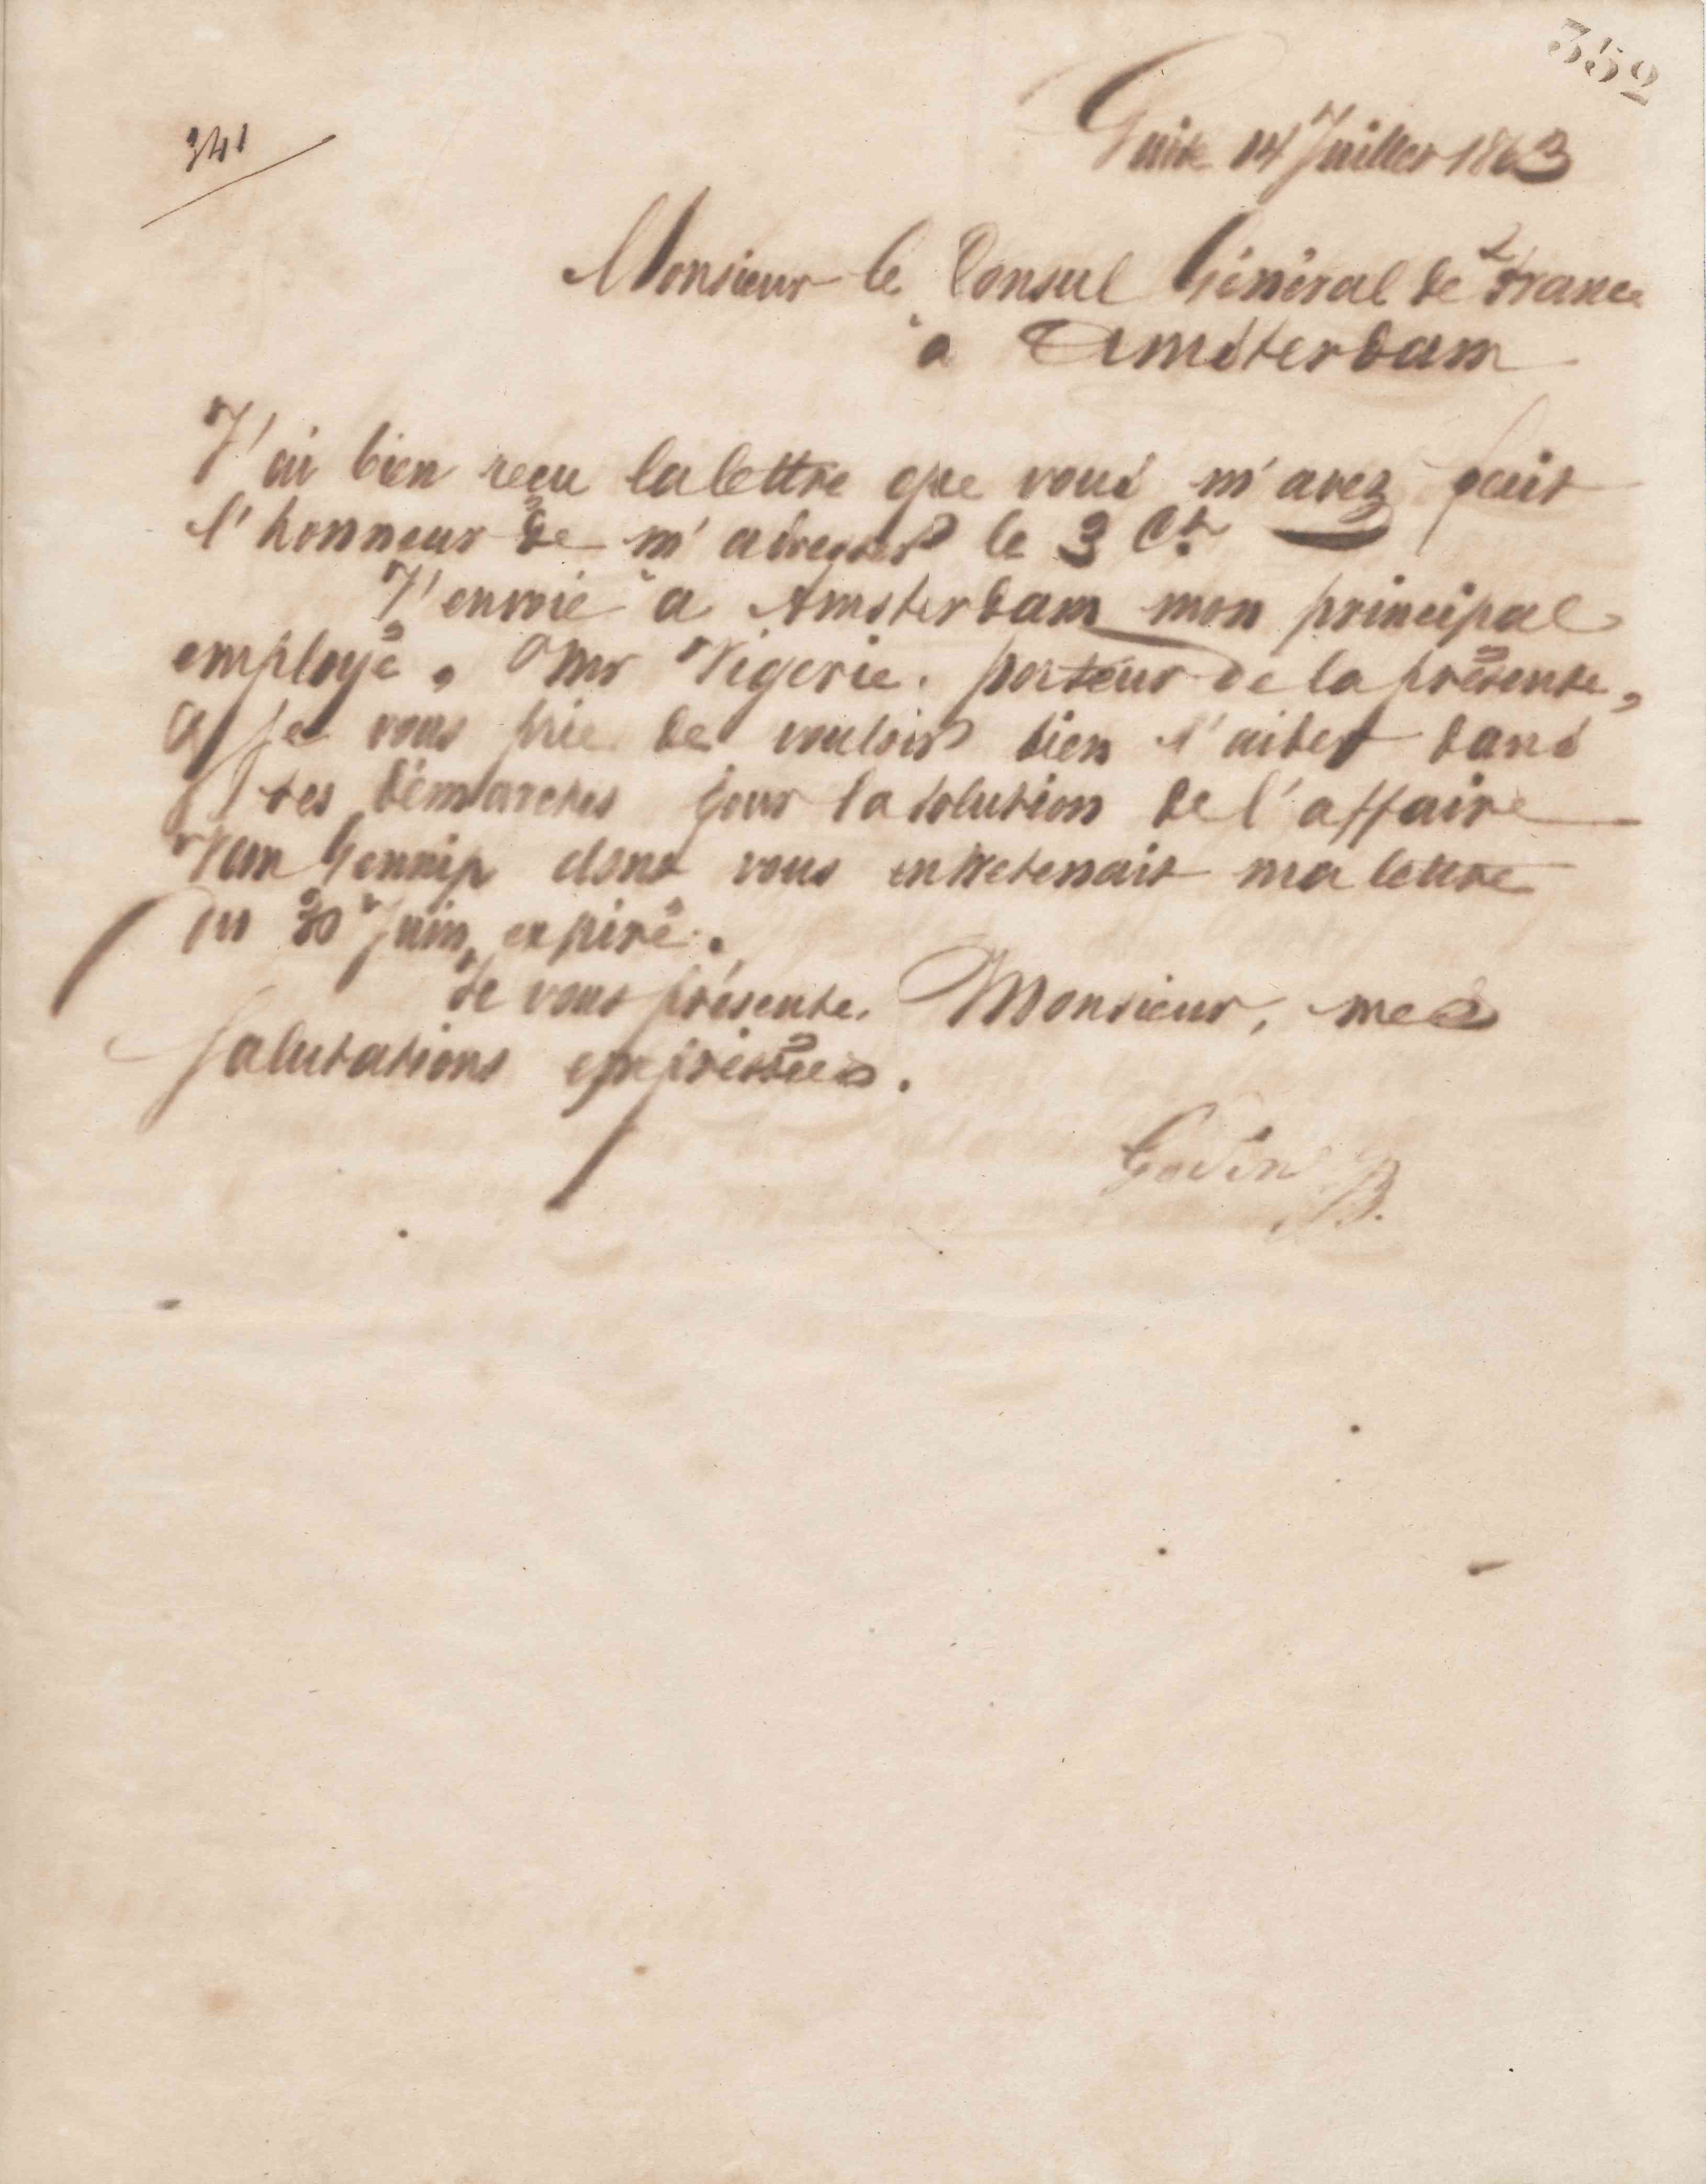 352
341
Guise 14 Juillet 1863
Monsieur le Consul Général de France
à Amsterdam
J'ai bien reçu la lettre que vous m'avez fait
l'honneur de m'adresser le 3 Ct
J'envoie à Amsterdam mon principal
employé, Mr Vigerie, porteur de la présente,
& je vous prie de vouloir bien l'aider dans
ses démarches pour la solution de l'affaire
Van Gennip dont vous entretenait ma lettre
du 30 Juin expiré.
Je vous présente, Monsieur, mes
salutations empressées.
Godin